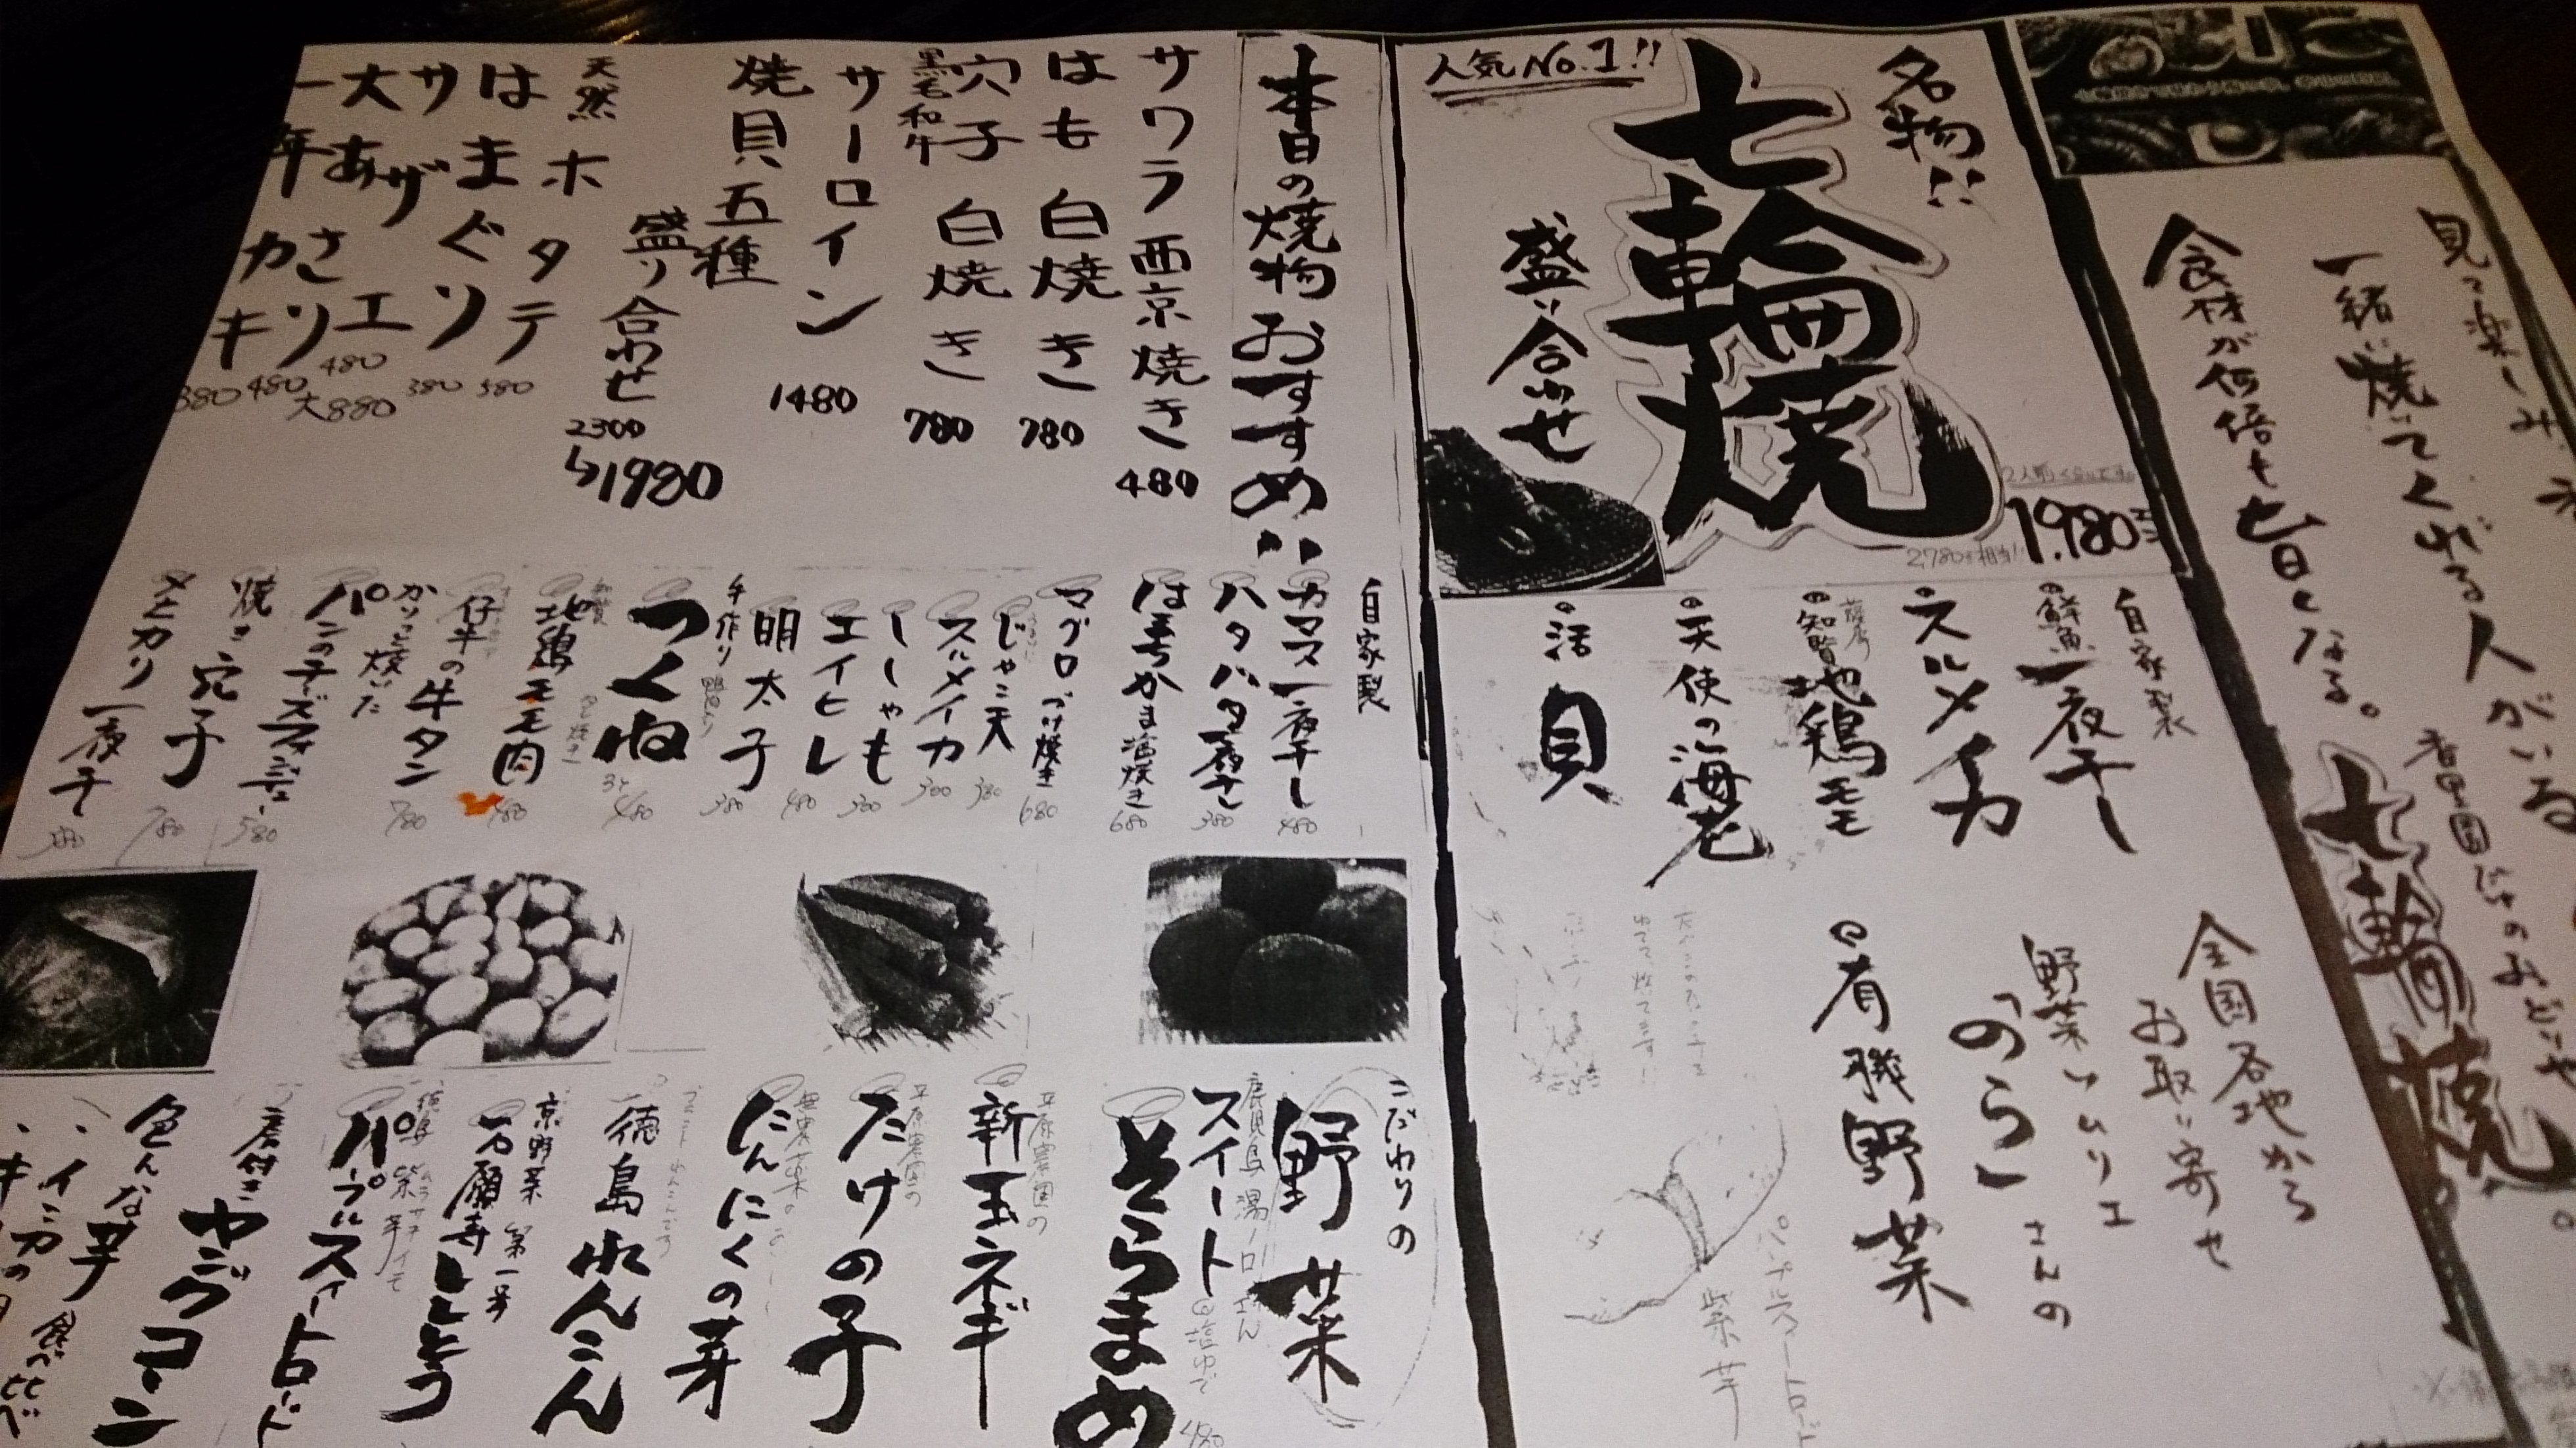 見て楽しみ
一緒に焼いてくれる人がいる
食材が何倍も旨くなる。
香里園じゃのおどりや
七輪焼。
名物!!
七輪焼
盛り合わせ
人気No.1!!
1,980
2,780円相当!!
自家製
鮮魚一夜干し
スルメイカ
薩摩
知覧地鶏モモ
天使の海老
活貝
全国各地から
お取り寄せ
野菜ソムリエ
「のらー」さんの
有機野菜
パープルスイートロード
紫芋
本日の焼物おすすめ!!
サワラ西京焼き 480
はも白焼き 780
穴子白焼き 780
黒毛和牛
サーロイン 1480
焼貝五種
盛り合わせ 2300
1980
天然ホタテ 580
はまぐり 380
サザエ 480
大880
大あさり 480
一年カキ 380
自家製
カマス一夜干し 480
ハタハタ一夜干し 380
はまちかま塩焼き 680
マグロづけ焼き 680
じゃこ天 380
スルメイカ 300
ししゃも 300
エイヒレ 480
明太子 380
手作り
つくね 480
地鶏モモ肉 480
仔牛の牛タン 780
かりっと焼いた
パンのチーズフォンデュ 580
焼き穴子 780
メヒカリ一夜干し 380
こだわりの
野菜
鹿児島
スイート
塩ゆで
そらまめ 480
平原農園の
新玉ネギ
平原農園の
たけの子
にんにくの芽
徳島れんこん
京野菜 第一号
万願寺ししとう
徳島 紫芋
パープルスイートロード
皮付きヤングコーン
色んな芋
食べ比べ